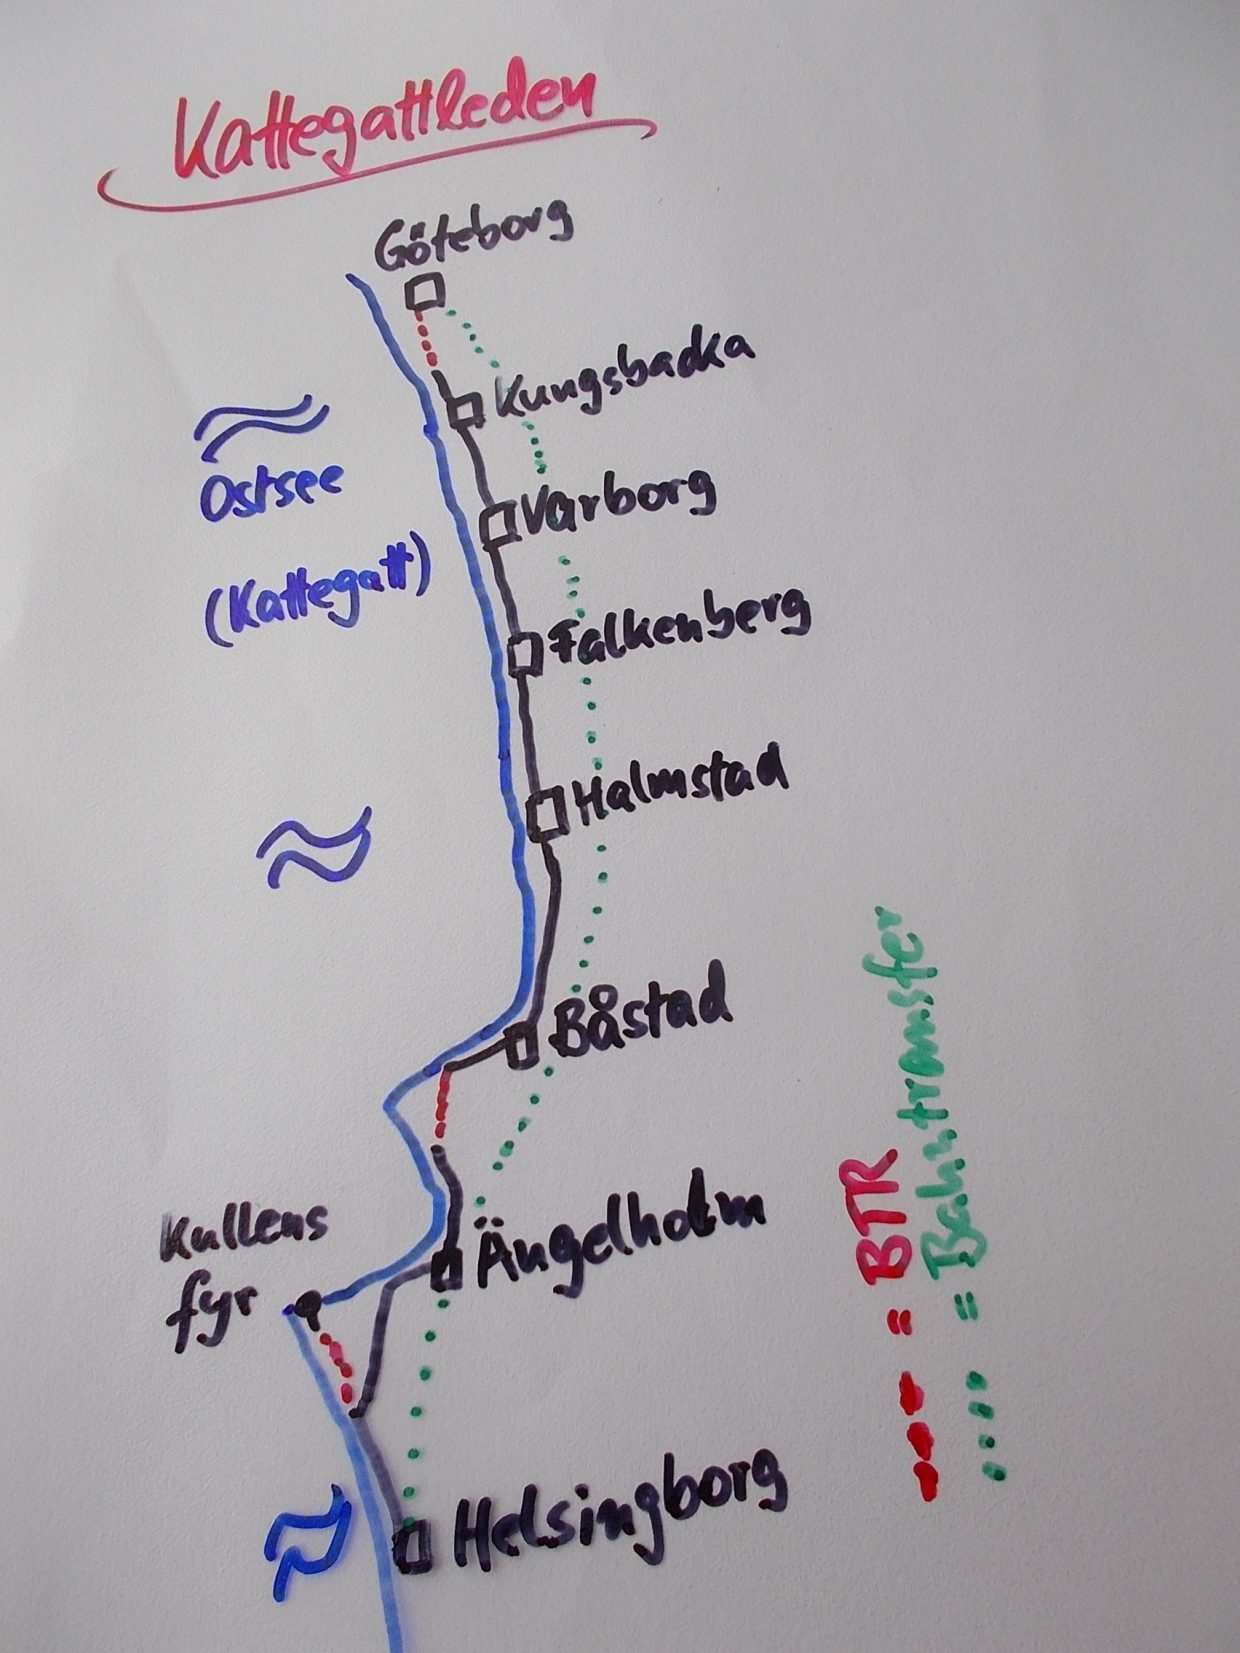 Kattegattleden
Göteborg
Kungsbacka
Ostsee
(Kattegatt)
Varborg
Falkenberg
Halmstad
Båstad
Kullens
fyr
Ängelholm
Helsingborg
= BTR
= Bahntransfer